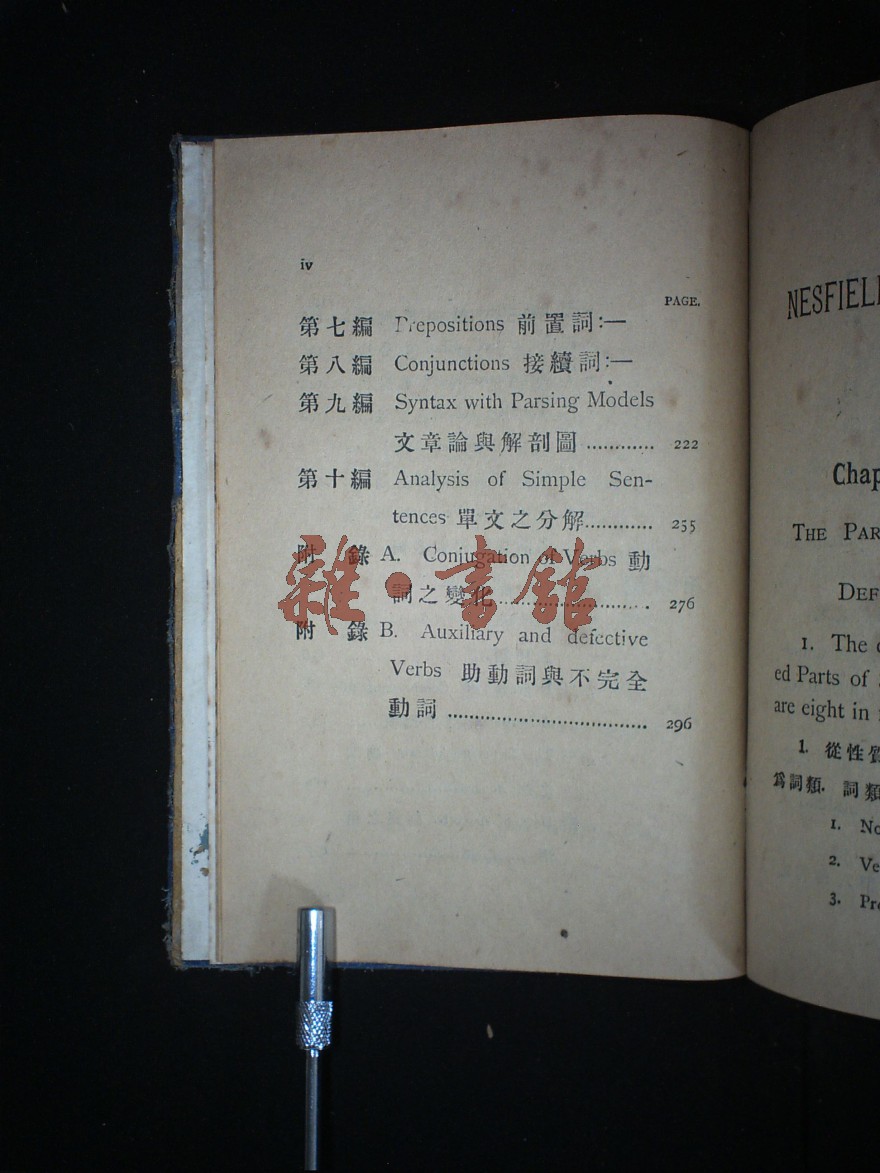 iv
PAGE.
第七編 Prepositions 前置詞:—
第八編 Conjunctions 接續詞:—
第九編 Syntax with Parsing Models
文章論與解剖圖 ............ 222
第十編 Analysis of Simple Sen-
tences 單文之分解............ 255
附 錄 A. Conjugation of Verbs 動
詞之變化............................ 276
附 錄 B. Auxiliary and defective
Verbs 助動詞與不完全
動詞 ..................................... 296
雜·書館
NESFIEL
Chap
THE PAR
DEF
1. The
ed Parts of
are eight in
1. 從性質
爲詞類. 詞類
1. No
2. Ve
3. Pr